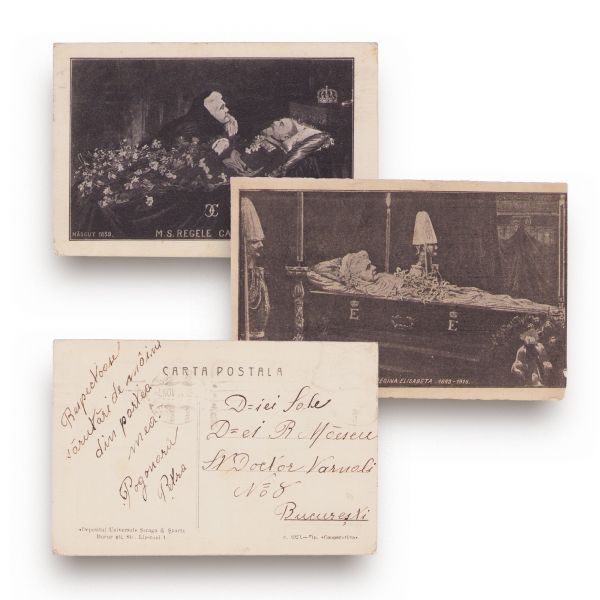 NĂSCUT 1839.
M.S. REGELE CA
E
E
REGINA ELISABETA 1843-1916.
CARTA POSTALA
Respectoase
sărutări de mâini
din partea
mea.
Pogonerii
Petra
D=iei Sale
D=ei R Măescu
St Doctor Varnali
No 8
București
«Depozitul Universale Saraga & Șvartz
București, Str. Lipscani 1